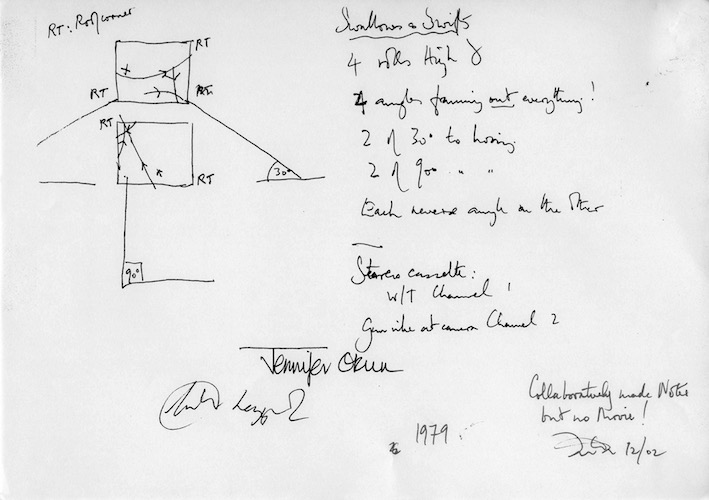 RT: Roof corner
RT
RT
RT
RT
RT
30°
90°
Swallows & Swifts
4 rolls High
4 angles framing out everything!
2 of 30° to housing
2 of 90° " "
Each reverse angle on the other
Stereo cassette:
W/T Channel 1
Gun mike at camera Channel 2
Jennifer Okun
1979
Collaboratively made Notes
but no Movie!
12/02